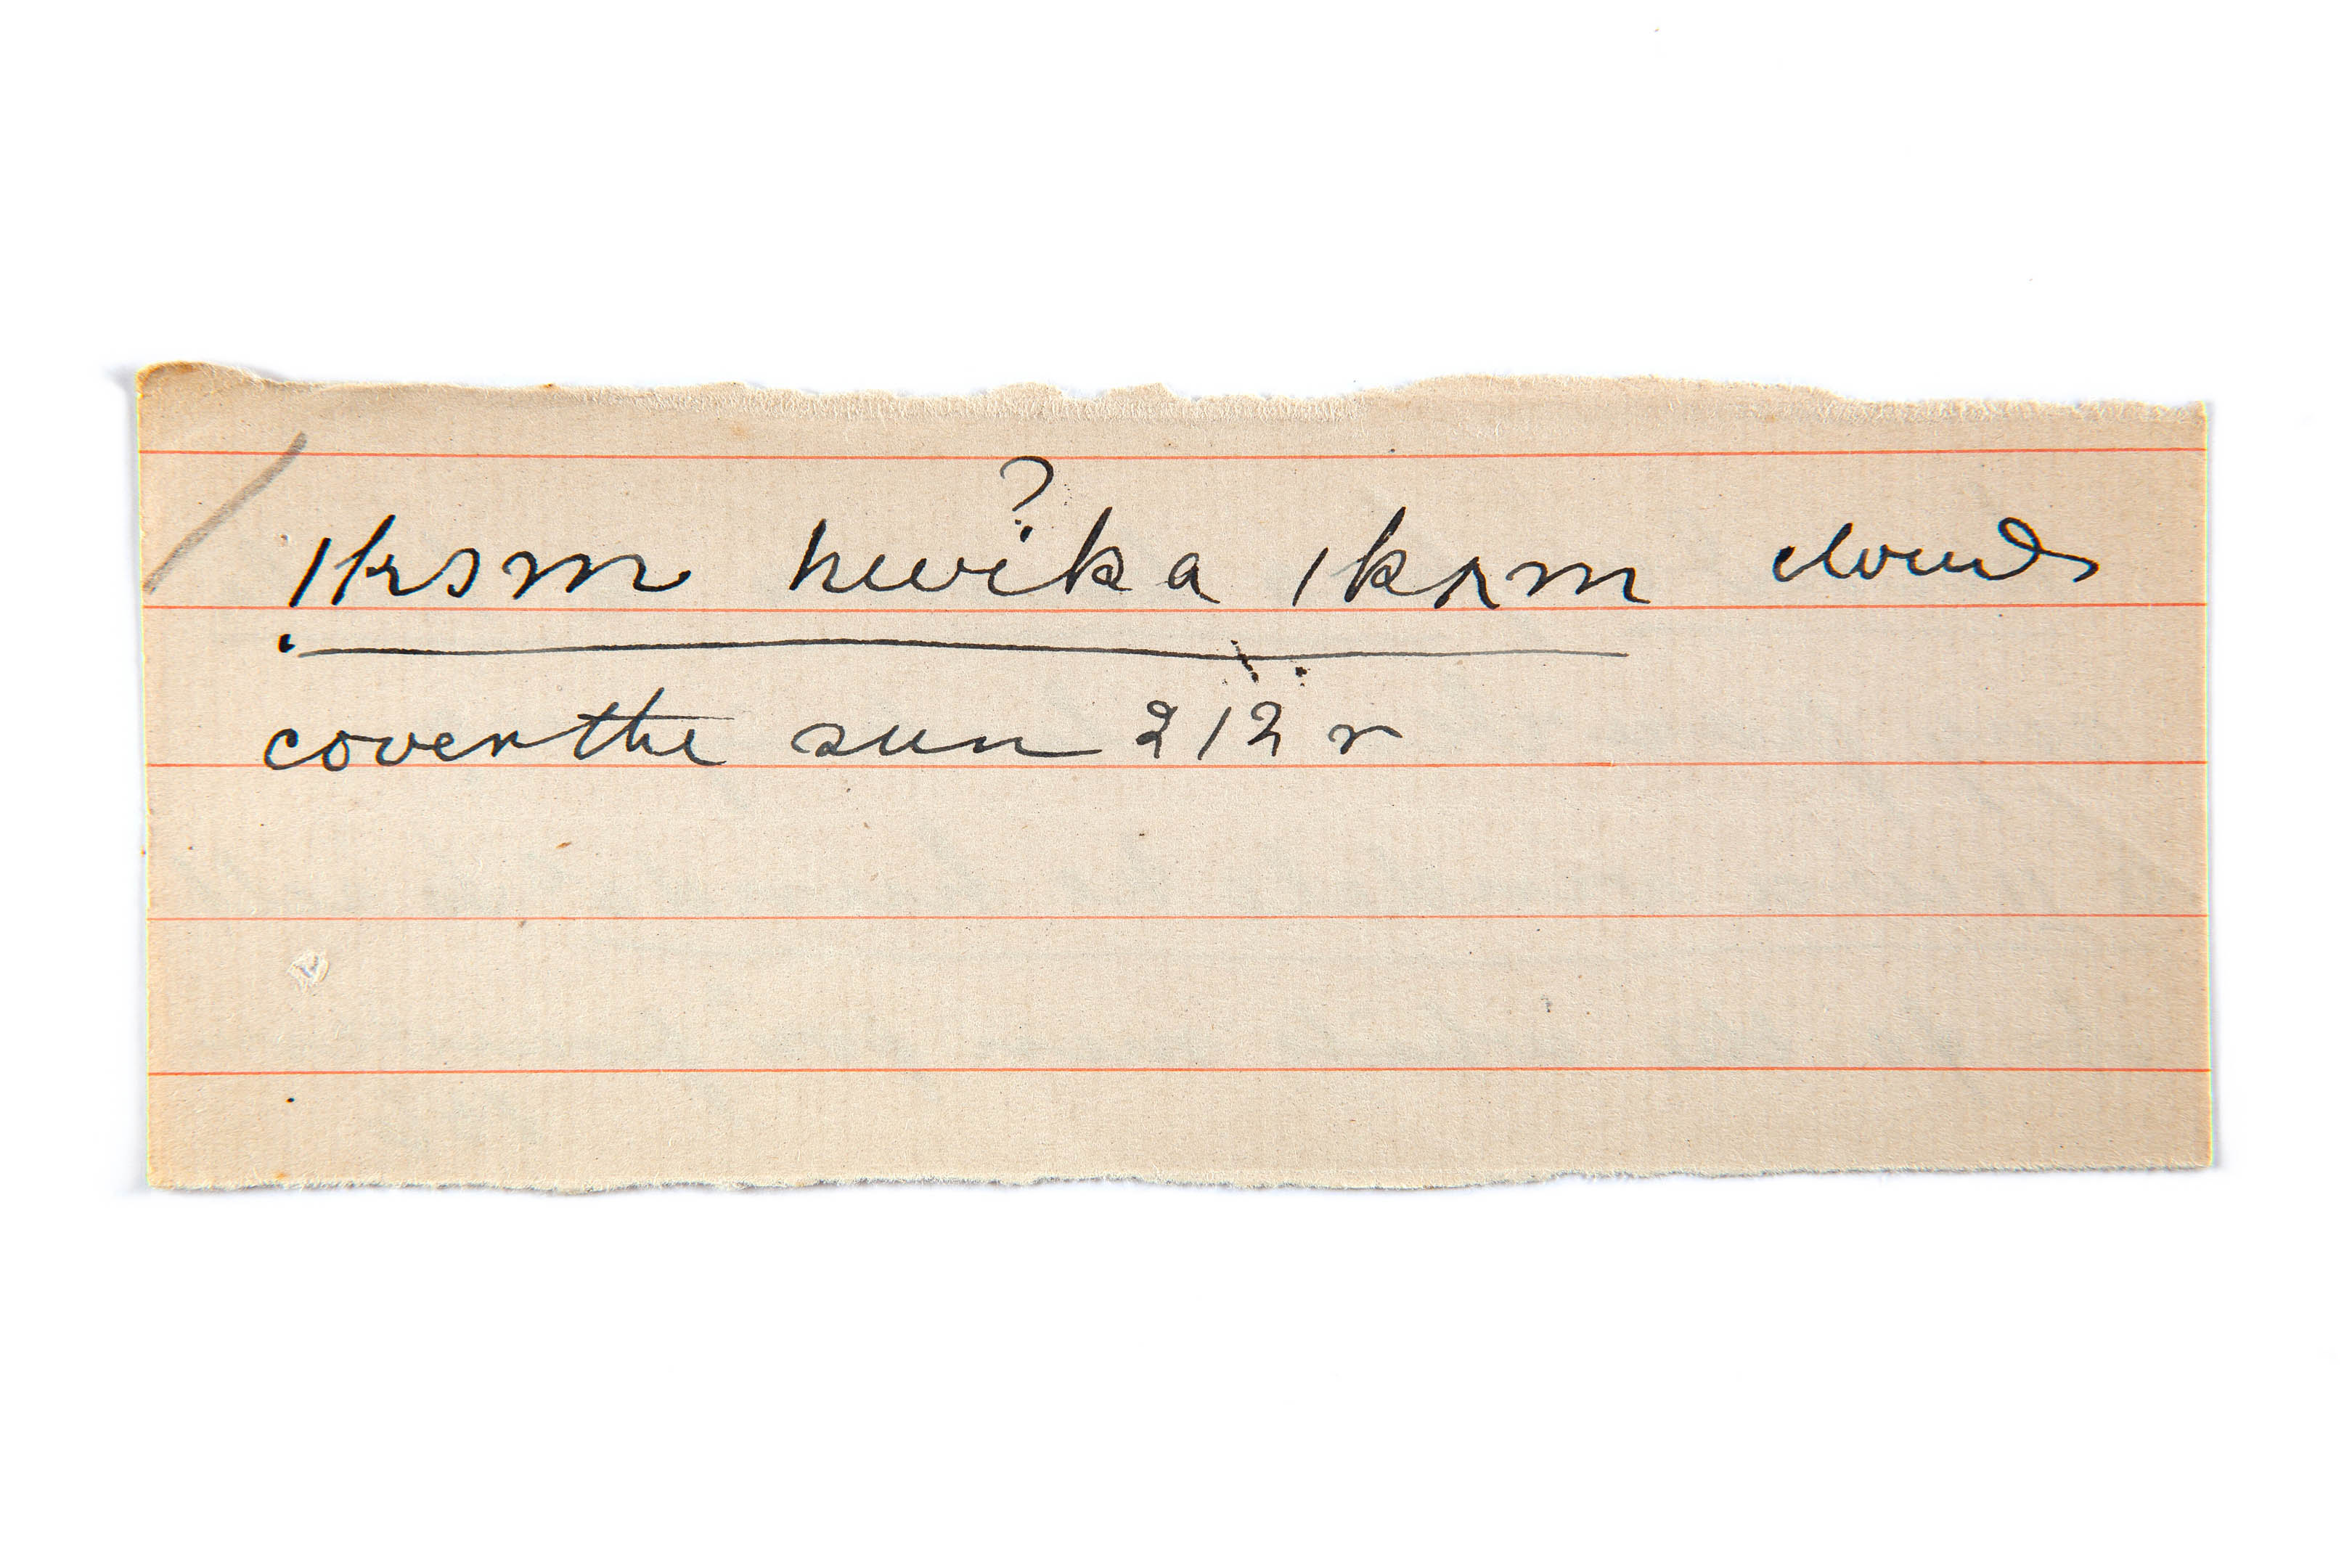 ?
ıkʌsm hwika ıkʌm clouds
cover the sun 212 r